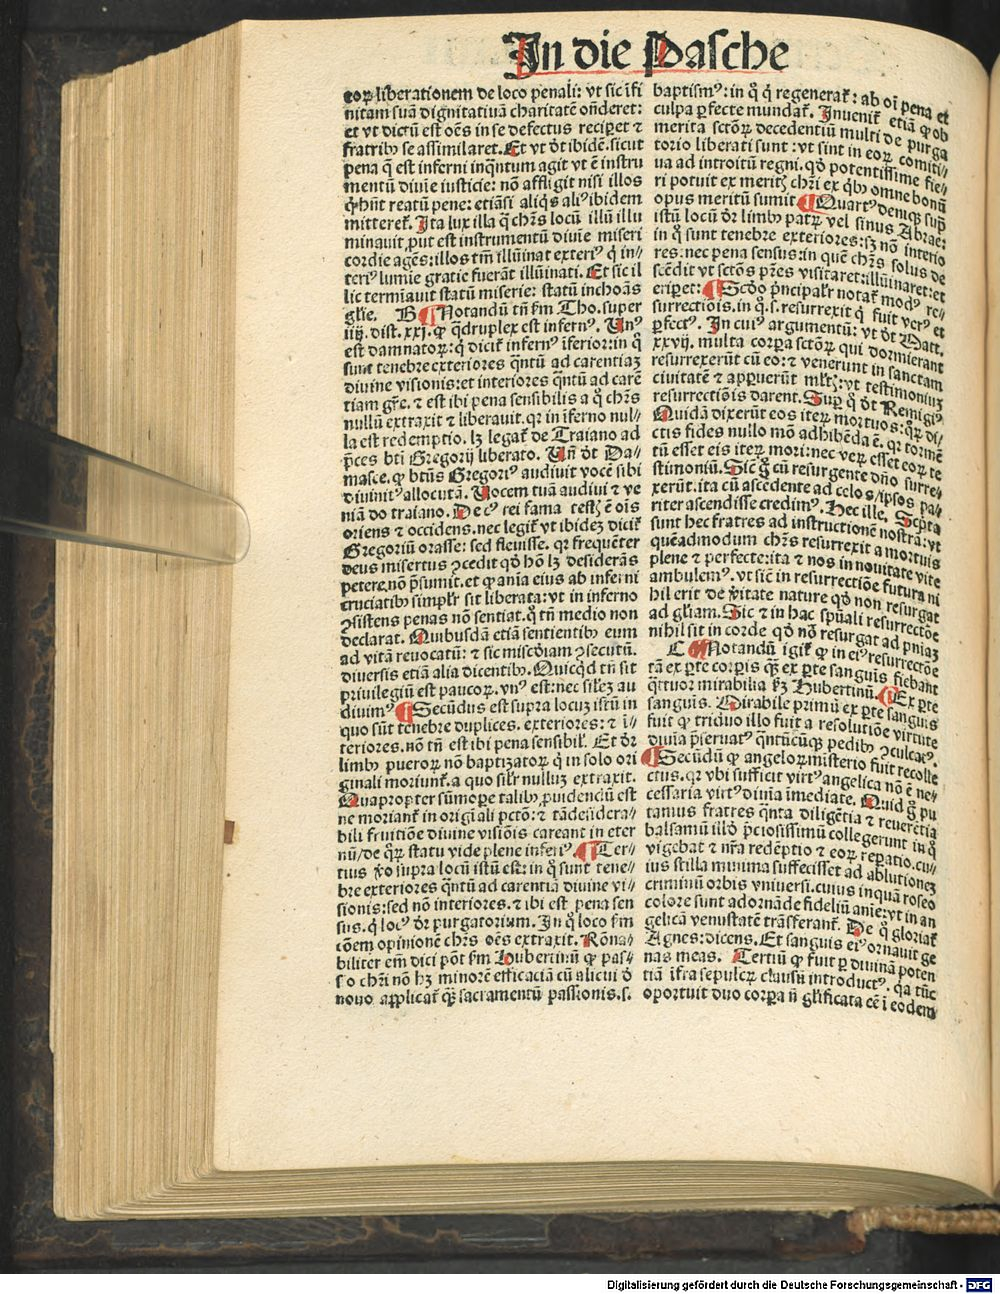 In die Pasche
eoꝝ liberationem de loco penali: vt sic ifi
nitam suā dignitatiuā charitatē oñderet:
et vt dictū est oēs in se defectus reciꝑet ⁊
fratribꝰ se assimilaret. Et vt ð̄t ibidē. sicut
pena q̄ est inferni inq̄ntum agit vt ē instru
mentū diuīe iusticie: nō affligit nisi illos
q̇ hn̄t reatū pene: etiāsi aliq̇s aliꝰ ibidem
mitteret̄. Ita lux illa q̄ chr̄s locū illū illu
minauit ꝓut est instrumentū diuīe miseri
cordie agēs: illos tm̄ illūinat exteriꝰ q̇ in⸗
teriꝰ lumīe gratie fuerāt illūinati. Et sic il
lic termīauit statū miserie: statū inchoās
glīe. B ¶Notandū tn̄ ẜm Tho. super
iiij. dist. xxj. ꝙ q̄druplex est infernꝰ. Unꝰ
est damnatoꝝ: q̇ dicit̄ infernꝰ īferior: in q̊
sunt tenebre exteriores q̄ntū ad carentiaꝫ
diuine visionis: et interiores q̄ntū ad carē
tiam gr̄e. ⁊ est ibi pena sensibilis a q̊ chr̄s
nullū extraxit ⁊ liberauit. qꝛ in īferno nul⸗
la est redemptio. lꝫ legat̄ de Traiano ad
p̄ces bt̄i Gregorij liberato. Uñ ð̄t Da⸗
masce. ꝙ bt̄us Gregoriꝰ audiuit vocē sibi
diuinitꝰ allocutā. Uocem tuā audiui ⁊ ve
niā do traiano. De cꝰ rei fama testꝭ ē oīs
oriens ⁊ occidens. nec legit̄ vt ibideꝫ dicit̄
Gregoriū orasse: sed fleuisse. qꝛ frequēter
deus misertus ꝯcedit qd̓ hō lꝫ desiderās
petere. nō p̄sumit. et ꝙ aīa eius ab inferni
cruciatibꝰ simplr̄ sit liberata: vt in inferno
ꝯsistens penas nō sentiat. q̊ tn̄ medio non
declarat. Quibusdā etiā sentientibꝰ eum
ad vitā reuocatū: ⁊ sic mīscd̓iam ꝯsecutū.
diuersis etiā alia dicentibꝰ. Quicq̇d tn̄ sit
priuilegiū est paucoꝝ. vnꝰ est: nec sil̓eꝫ au
diuimꝰ ¶Secūdus est supra locuꝫ istū in
quo sūt tenebre duplices. exteriores: ⁊ ī⸗
teriores. nō tn̄ est ibi pena sensibil̓. Et d̓r
limbꝰ pueroꝝ nō baptizatoꝝ q̇ in solo ori
ginali moriunt̄. a quo sil̓r nulluꝫ extraxit.
Quapropter sūmoꝑe talibꝰ ꝓuidendū est
ne moriant̄ in origiali pctō: ⁊ tā desidera⸗
bili fruitiōe diuine visiōis careant in eter
nū/ de q̊ꝝ statu vide plene inferiꝰ. ¶Ter⸗
tius v̓o supra locū istū est: in q̊ sunt tene⸗
bre exteriores q̄ntū ad carentiā diuine vi⸗
sionis: sed nō interiores. ⁊ ibi est pena sen
sus. q̇ locꝰ d̓r purgatorium. In q̊ loco ẜm
cōem opinionē chr̄s oēs extraxit. Rōna⸗
biliter em̄ dici pōt ẜm Hubertinū ꝙ pas⸗
sio chr̄i nō hꝫ minorē efficaciā cū alicui d̓
nouo applicat̄ q̄ꝫ sacramentū passionis. s.
baptismꝰ: in q̊ q̇ regenerat̄: ab oī pena et
culpa ꝑfecte mundat̄. Inuenit̄ etiā ꝙ ob
merita sctōꝝ decedentiū multi de purga
torio liberati sunt: vt sint in eoꝝ comiti⸗
ua ad introitū regni. qd̓ potentissime fie⸗
ri potuit ex meritꝭ chr̄i ex q̇bꝰ omne bonū
opus meritū sumit. ¶Quartꝰ deniqꝫ supͣ
istū locū d̓r limbꝰ patꝝ vel sinus Abrae:
in q̊ sunt tenebre exteriores: sꝫ nō interio
res: nec pena sensus: in quē chr̄s solus de
scēdit vt sctōs p̄res visitaret: illūinaret: et
eriꝑet: ¶Scd̓o p̄ncipalr̄ notat̄ modꝰ re⸗
surrectiōis. in q̊. s. resurrexit q̇ fuit verꝰ et
ꝑfectꝰ. In cuiꝰ argumentū: vt ð̄t Matt.
xxvij. multa corꝑa sctōꝝ qui dormierant
resurrexerūt cū eo: ⁊ venerunt in sanctam
ciuitatē ⁊ apꝑuerūt mlt̄ꝭ: vt testimoniuꝫ
resurrectiōis darent. Suꝑ q̊ ð̄t Remigiꝰ
Quidā dixerūt eos iteꝝ mortuos: q̊ꝝ di⸗
ctis fides nullo mō adhibēda ē. qꝛ tormē
tū esset eis iteꝝ mori: nec veꝝ esset eoꝝ te
stimoniū. Sic g̊ cū resurgente dn̄o surre⸗
xerūt. ita cū ascedente ad celos/ ipsos pa⸗
riter ascendisse credimꝰ. Hec ille. Sc̓pta
sunt hec fratres ad instructionē nostrā: vt
quēadmodum chr̄s resurrexit a mortuis
plene ⁊ perfecte: ita ⁊ nos in nouitate vite
ambulemꝰ. vt sic̄ in resurrectiōe futura ni
hil erit de v̓itate nature qd̓ non resurgat
ad glīam. Sic ⁊ in hac spūali resurrectōe
nihil sit in corde qd̓ nō resurgat ad pn̄iaꝫ
C ¶Notandū igit̄ ꝙ in eiꝰ resurrectōe
tā ex ꝑte corꝑis q̄ꝫ ex ꝑte sanguīs fiebant
q̄ttuor mirabilia ẜꝫ Hubertinū. ¶Ex ꝑte
sanguīs. Mirabile primū ex ꝑte sanguīs
fuit ꝙ triduo illo fuit a resolutiōe virtute
diuīa p̄seruatꝰ q̄ntūcūqꝫ pedibꝰ ꝯculcatꝰ.
¶Secūdū ꝙ angeloꝝ misterio fuit recolle
ctus. qꝛ vbi sufficit virtꝰ angelica nō ē ne⸗
cessaria virtꝰ diuīa īmediate. Quid g̊ pu
tamus fratres q̄nta diligētia ⁊ reuerētia
balsamū illd̓ p̄ciosissimū collegerunt in q̊
vigebat ⁊ nr̄a redēptio ⁊ eoꝝ reꝑatio. cu⸗
ius stilla minima suffecisset ad ablutioneꝫ
criminū orbis vniuersi. cuius inquā roseo
colore sunt adornāde fideliū anīe: vt in an
gelicā venustatē trāsferant̄. De q̊ gloriat̄
Agnes: dicens. Et sanguis eiꝰ ornauit ge
nas meas. Tertiū ꝙ fuit ꝑ diuinā poten
tiā īfra sepulcꝝ clausū introductꝰ. qa tūc
oportuit duo corꝑa ñ glīficata eē ī eodem
Digitalisierung gefördert durch die Deutsche Forschungsgemeinschaft - DFG